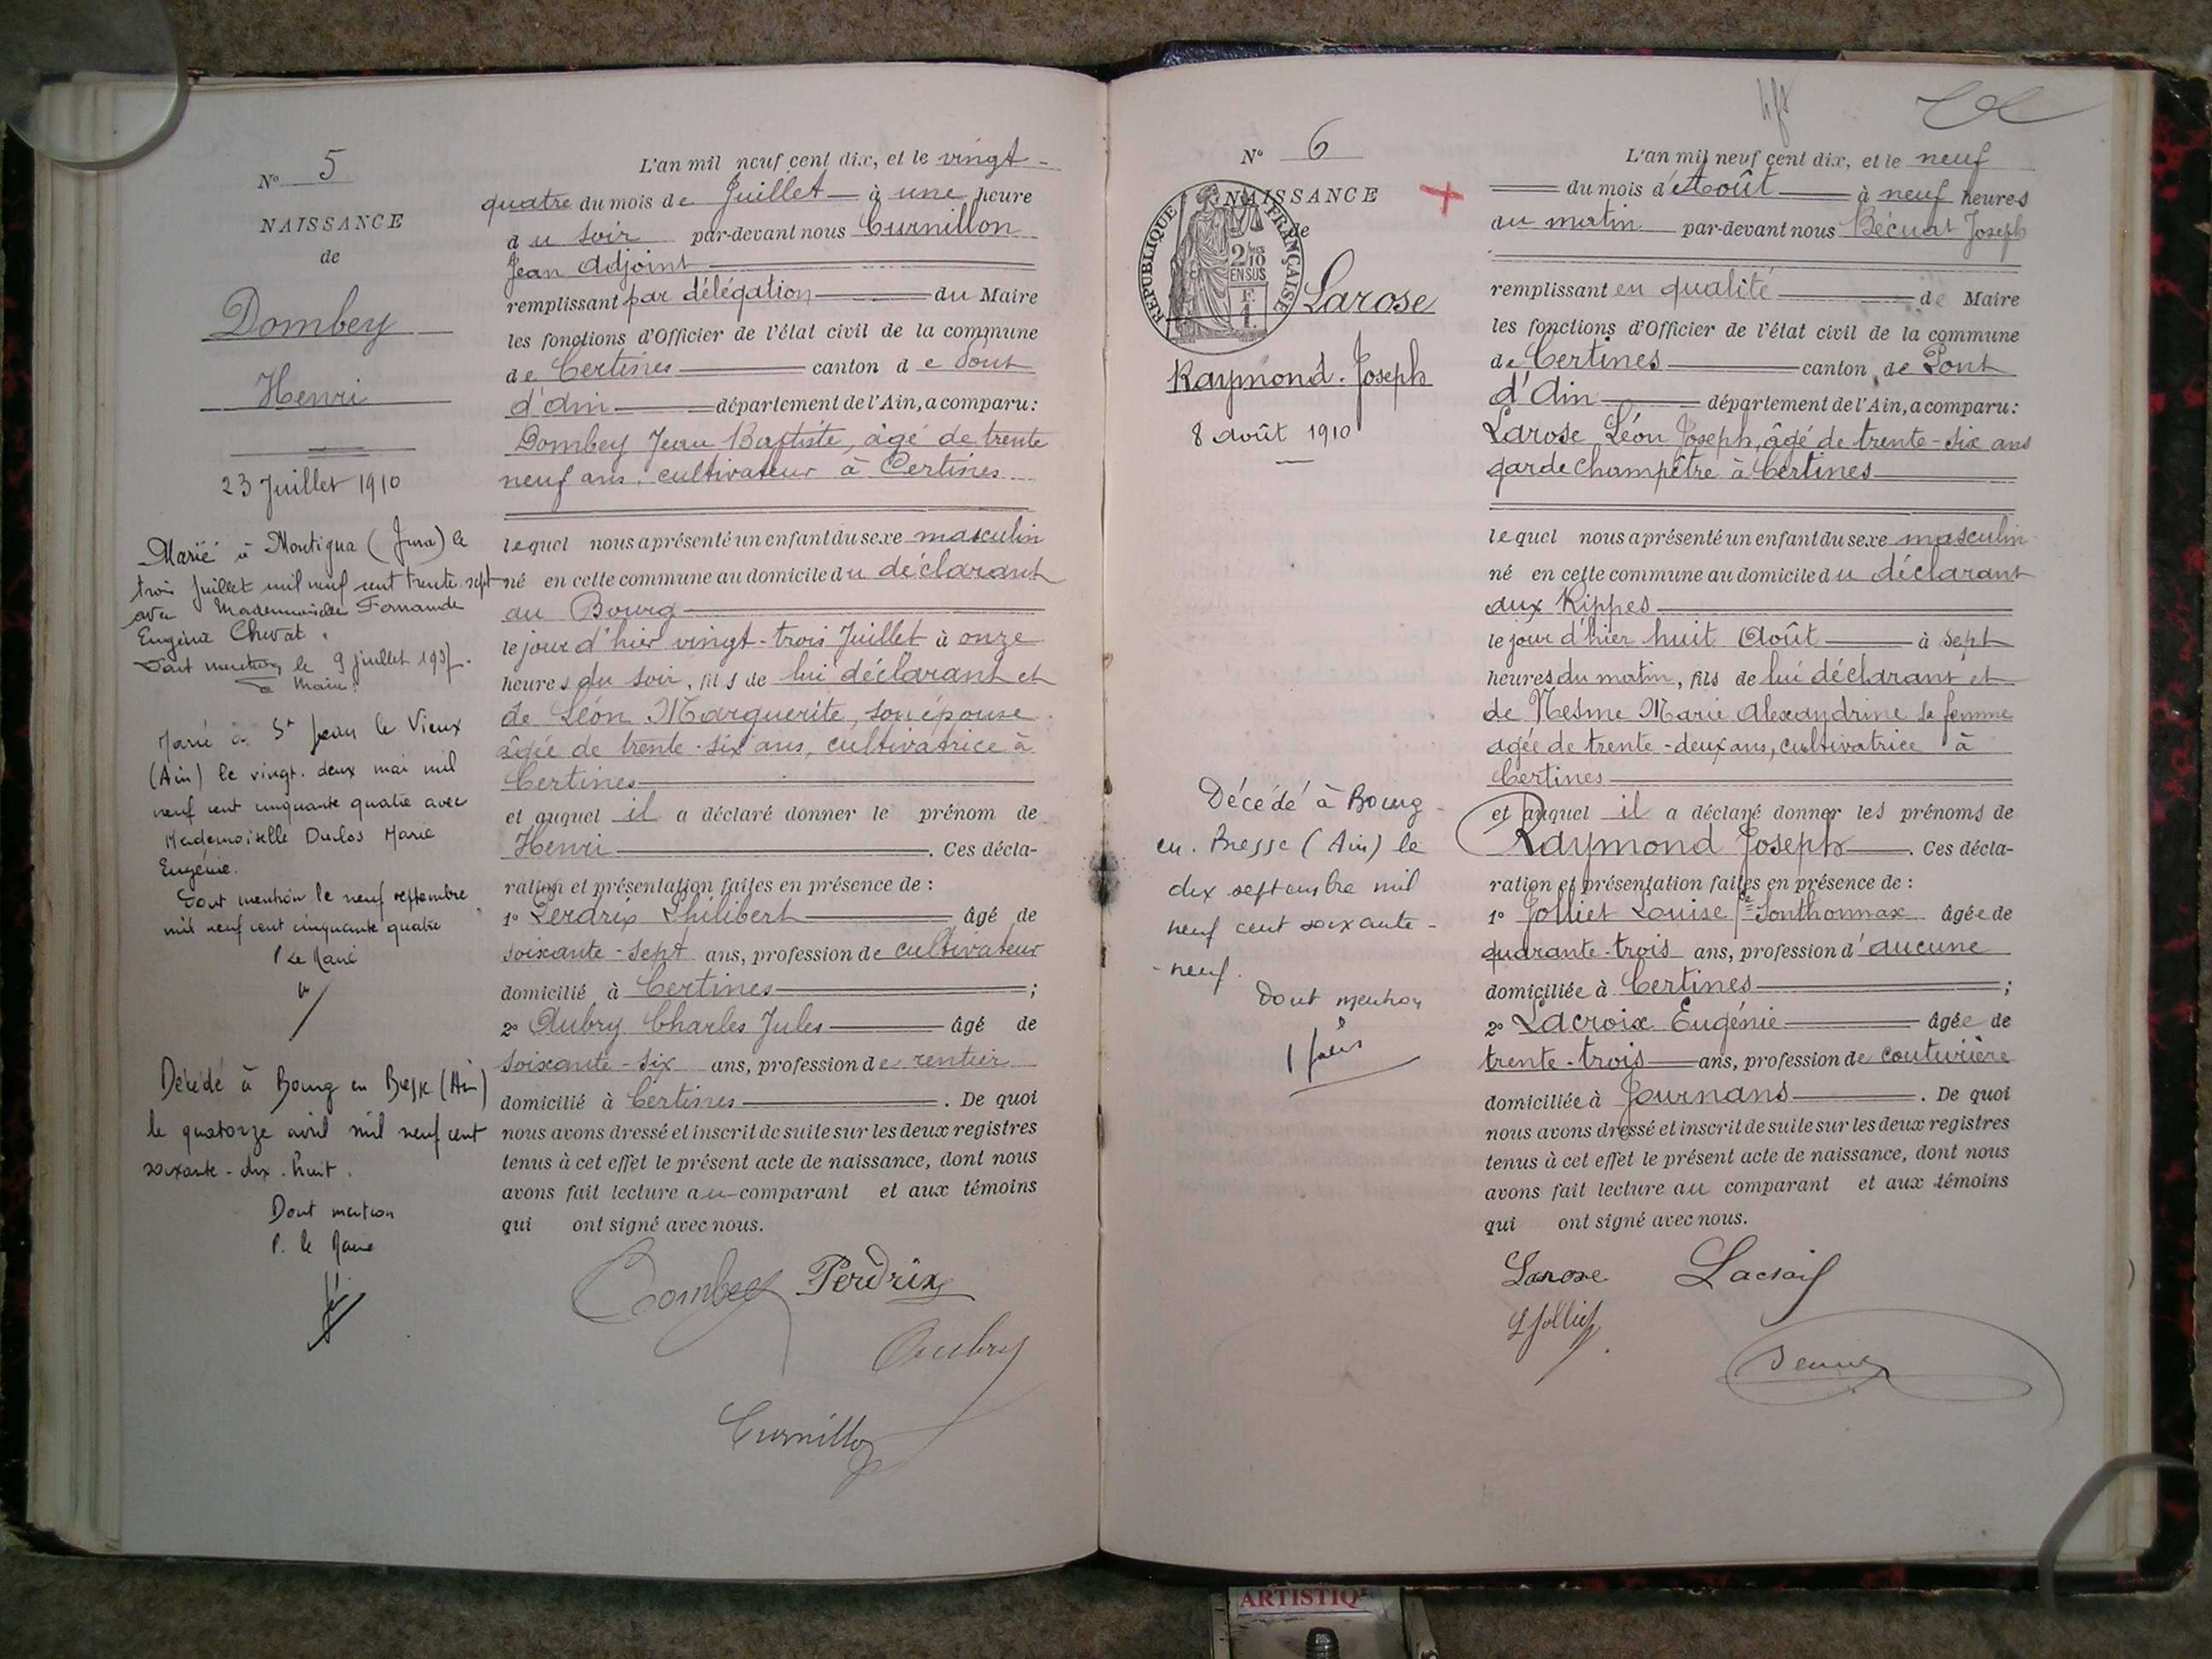 N° 5
NAISSANCE
de
Dombey
Henri
23 Juillet 1910
Marié à Montigna (Jura) le
trois Juillet mil neuf cent trente sept
avec Mademoiselle Fernande
Eugénie Chevat.
Dont mention, le 9 juillet 1937.
Le Maire:
Marié à St Jean le Vieux
(Ain) le vingt-deux mai mil
neuf cent cinquante quatre avec
Mademoiselle Duclos Marie
Eugénie.
Dont mention le neuf septembre
mil neuf cent cinquante quatre
P Le Maire
Décédé à Bourg en Bresse (Ain)
le quatorze avril mil neuf cent
soixante-dix-huit.
Dont mention
P. le Maire
L'an mil neuf cent dix, et le vingt-
quatre du mois de Juillet à une heure
du soir par-devant nous Curnillon
Jean Adjoint
remplissant par délégation du Maire
les fonctions d'Officier de l'état civil de la commune
de Certines canton de Pont
d'Ain département de l'Ain, a comparu:
Dombey Jean Baptiste, âgé de trente
neuf ans, cultivateur à Certines
lequel nous a présenté un enfant du sexe masculin
né en cette commune au domicile du déclarant
au Bourg
le jour d'hier vingt-trois Juillet à onze
heures du soir, fils de lui déclarant et
de Léon Marguerite, son épouse
âgée de trente-six ans, cultivatrice à
Certines
et auquel il a déclaré donner le prénom de
Henri. Ces décla-
ration et présentation faites en présence de :
1° Perdrix Philibert âgé de
soixante-sept ans, profession de cultivateur
domicilié à Certines ;
2° Aubry Charles Jules âgé de
soixante-six ans, profession de rentier
domicilié à Certines. De quoi
nous avons dressé et inscrit de suite sur les deux registres
tenus à cet effet le présent acte de naissance, dont nous
avons fait lecture au comparant et aux témoins
qui ont signé avec nous.
Dombey Perdrix
Aubry
Curnillon
N° 6
NAISSANCE
de
RÉPUBLIQUE FRANÇAISE
2/10
EN SUS
Larose
Raymond-Joseph
8 août 1910
Décédé à Bourg-
en-Bresse (Ain) le
dix septembre mil
neuf cent soixante-
-neuf.
Dont mention
L'an mil neuf cent dix, et le neuf
du mois d'Août à neuf heures
du matin par-devant nous Bécuat Joseph
remplissant en qualité de Maire
les fonctions d'Officier de l'état civil de la commune
de Certines canton de Pont
d'Ain département de l'Ain, a comparu:
Larose Léon Joseph, âgé de trente-six ans
garde champêtre à Certines
lequel nous a présenté un enfant du sexe masculin
né en cette commune au domicile du déclarant
aux Rippes
le jour d'hier huit Août à sept
heures du matin, fils de lui déclarant et
de Nesme Marie Alexandrine sa femme
agée de trente-deux ans, cultivatrice à
Certines
et auquel il a déclaré donner les prénoms de
Raymond Joseph. Ces décla-
ration et présentation faites en présence de :
1° Jolliet Louise fe Ponthonnax âgée de
quarante-trois ans, profession d'aucune
domiciliée à Certines ;
2° Lacroix Eugénie âgée de
trente-trois ans, profession de couturière
domiciliée à Journans. De quoi
nous avons dressé et inscrit de suite sur les deux registres
tenus à cet effet le présent acte de naissance, dont nous
avons fait lecture au comparant et aux témoins
qui ont signé avec nous.
Larose Lacroix
L Jolliet
ARTISTIQ